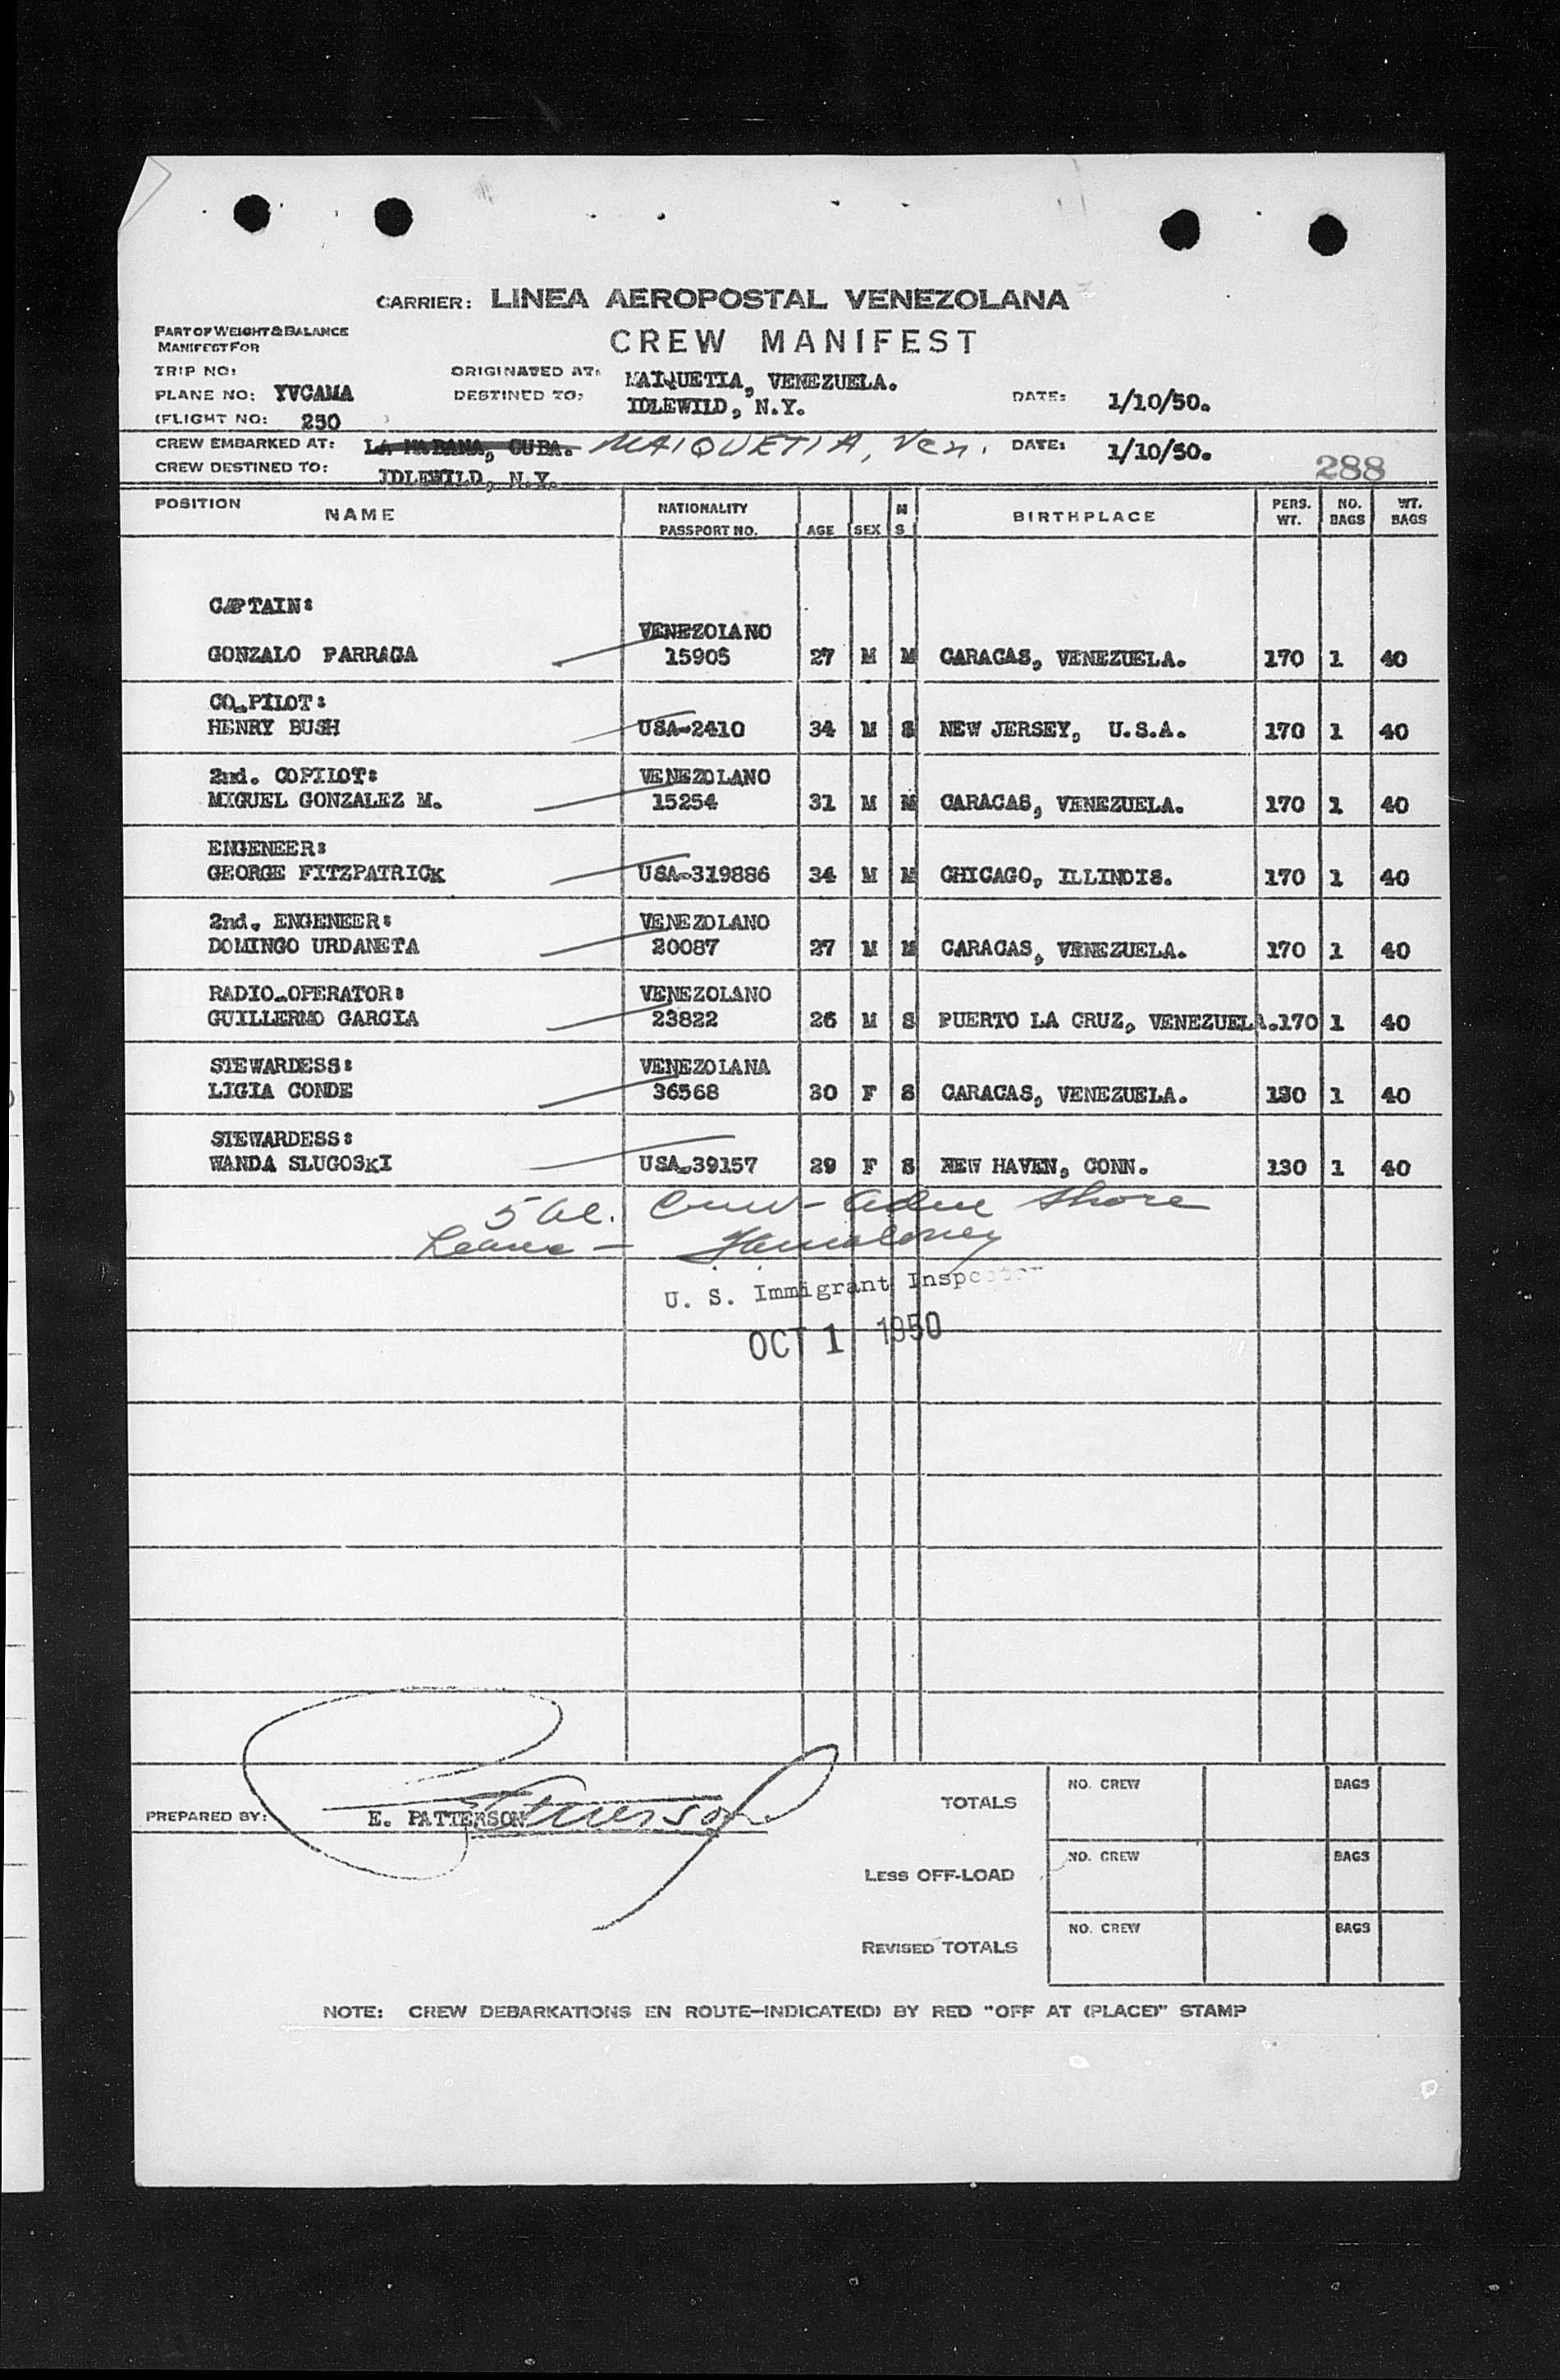 CARRIER: LINEA AEROPOSTAL VENEZOLANA
PART OF WEIGHT & BALANCE
MANIFEST FOR
CREW MANIFEST
TRIP NO: ORIGINATED AT: MAIQUETIA, VENEZUELA.
PLANE NO: YVCAMA DESTINED TO: IDLEWILD, N.Y. DATE: 1/10/50.
(FLIGHT NO: 250
CREW EMBARKED AT: LA HABANA, CUBA. MAIQUETIA, Ven. DATE: 1/10/50.
CREW DESTINED TO: IDLEWILD, N.Y. 288
POSITION NAME NATIONALITY PASSPORT NO. AGE SEX M S BIRTHPLACE PERS. WT. NO. BAGS WT. BAGS
CAPTAIN:
VENEZOLANO
GONZALO PARRAGA 15905 27 M M CARACAS, VENEZUELA. 170 1 40
CO-PILOT:
HENRY BUSH USA-2410 34 M S NEW JERSEY, U.S.A. 170 1 40
2nd. COPILOT: VENEZOLANO
MIGUEL GONZALEZ M. 15254 31 M M CARACAS, VENEZUELA. 170 1 40
ENGENEER:
GEORGE FITZPATRICK USA-319886 34 M M CHICAGO, ILLINOIS. 170 1 40
2nd. ENGENEER: VENEZOLANO
DOMINGO URDANETA 20087 27 M M CARACAS, VENEZUELA. 170 1 40
RADIO-OPERATOR: VENEZOLANO
GUILLERMO GARCIA 23822 26 M S PUERTO LA CRUZ, VENEZUELA. 170 1 40
STEWARDESS: VENEZOLANA
LIGIA CONDE 36568 30 F S CARACAS, VENEZUELA. 130 1 40
STEWARDESS:
WANDA SLUGOSKI USA-39157 29 F S NEW HAVEN, CONN. 130 1 40
5 al. Crew - Adm Shore
Leave -
U. S. Immigrant Inspector
OCT 1 1950
PREPARED BY: E. PATTERSON
TOTALS NO. CREW BAGS
LESS OFF-LOAD NO. CREW BAGS
REVISED TOTALS NO. CREW BAGS
NOTE: CREW DEBARKATIONS EN ROUTE-INDICATE(D) BY RED "OFF AT (PLACE)" STAMP